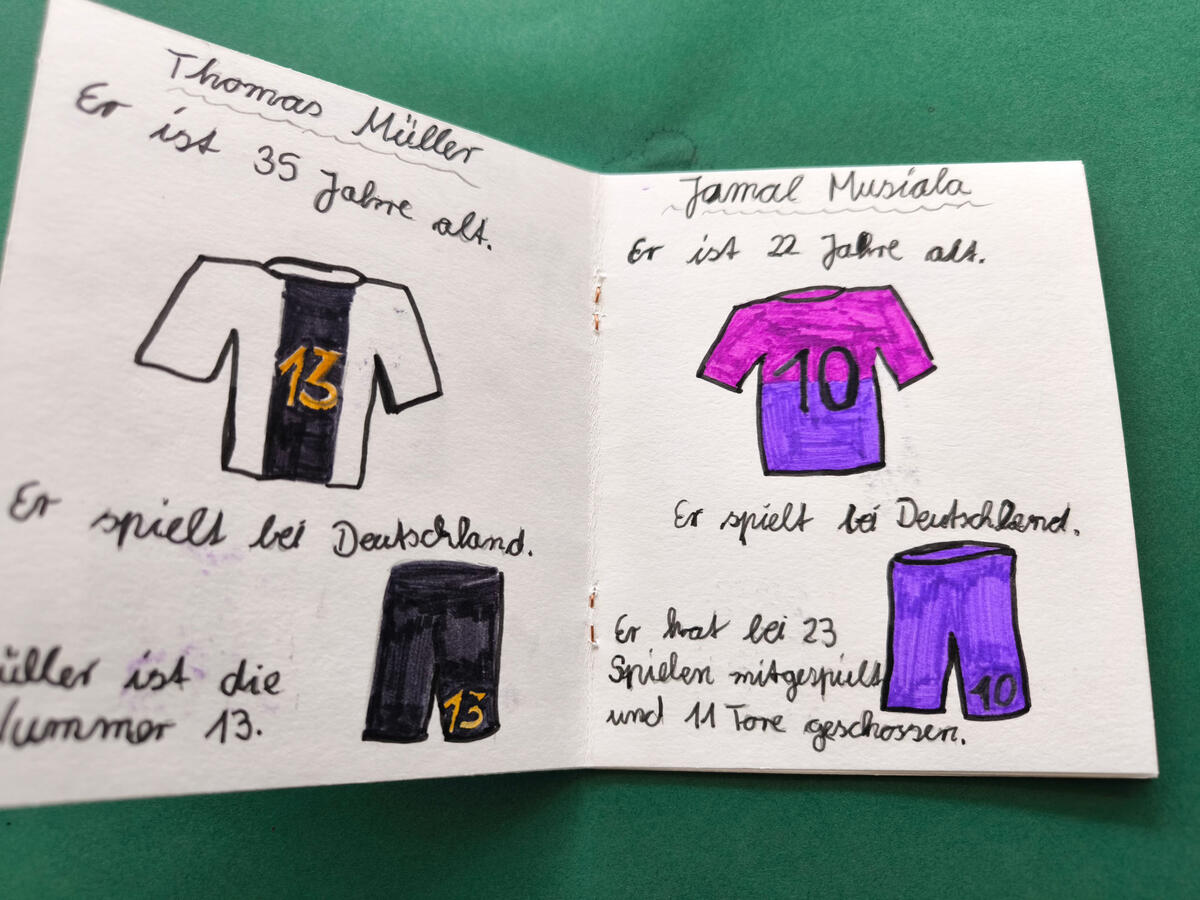 Thomas Müller
Er ist 35 Jahre alt.
13
Er spielt bei Deutschland.
üller ist die
ummer 13.
13
Jamal Musiala
Er ist 22 Jahre alt.
10
Er spielt bei Deutschland.
Er hat bei 23
Spielen mitgespielt
und 11 Tore geschossen.
10